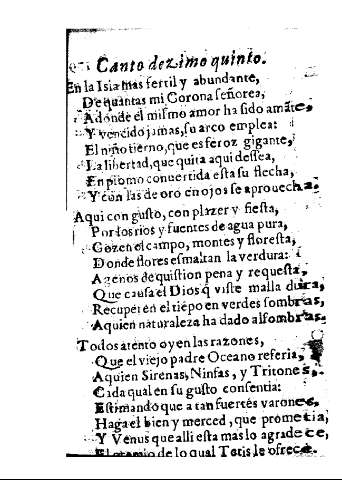 Canto dezimo quinto.
En la Isla mas fertil y abundante,
De quantas mi Corona señorea,
Adonde el mismo amor ha sido amāte,
Y vencido jamas, su arco emplea:
El niño tierno, que es feroz gigante,
La libertad, que quita aqui dessea,
En plomo conuertida esta su flecha,
Y con las de oro en ojos se aprouecha.
Aqui con gusto, con plazer y fiesta,
Por los rios y fuentes de agua pura,
Gozen el campo, montes y floresta,
Donde flores esmaltan la verdura:
Agenos de quistion pena y requesta,
Que causa el Dios q̄ viste malla dura,
Recuperen el tiēpo en verdes sombras,
A quien naturaleza ha dado alfombras.
Todos atento oyen las razones,
Que el viejo padre Oceano referia,
A quien Sirenas, Ninfas, y Tritones,
Cada qual en su gusto consentia:
Estimando que a tan fuertes varones,
Haga el bien y merced, que prometia,
Y Venus que alli esta mas lo agradece,
El premio de lo qual Tetis le ofrece.